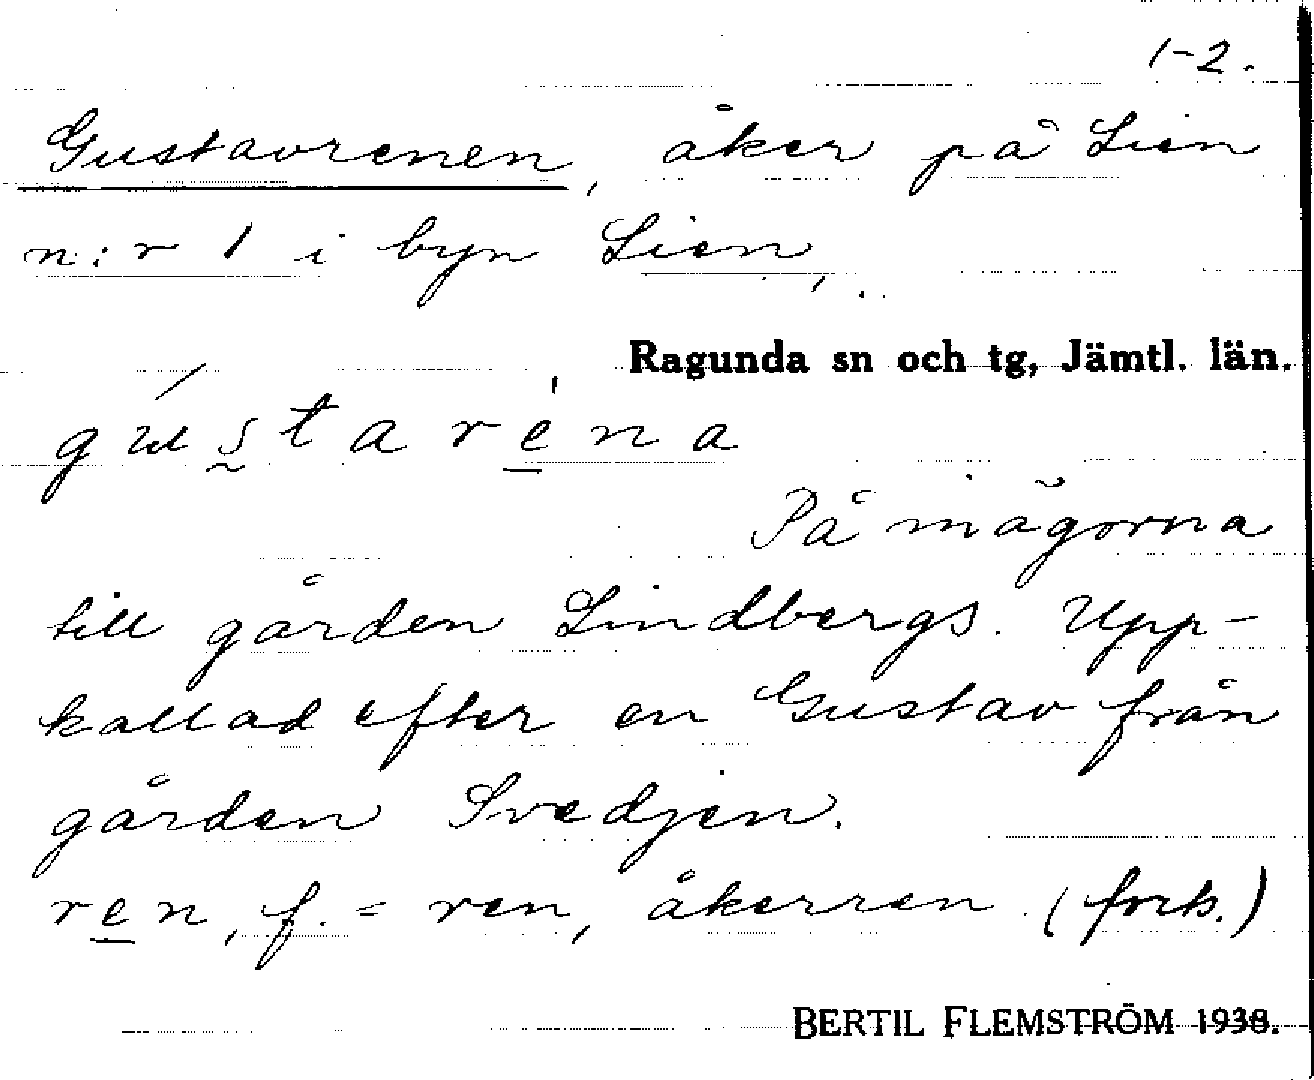 1-2.
Gustavrenen, åker på Lien
n:r 1 i byn Lien,
Ragunda sn och tg, Jämtl. län.
gustarena
På mågorna
till gården Lindbergs. Upp-
kallad efter en Gustav från
gården Svedjen.
ren, f. = ren, åkerren (forts.)
BERTIL FLEMSTRÖM 1938.